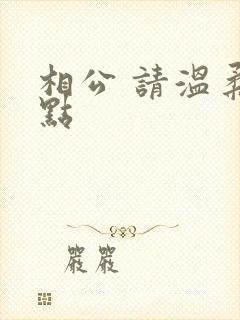 相公 請溫柔
點
嚴嚴